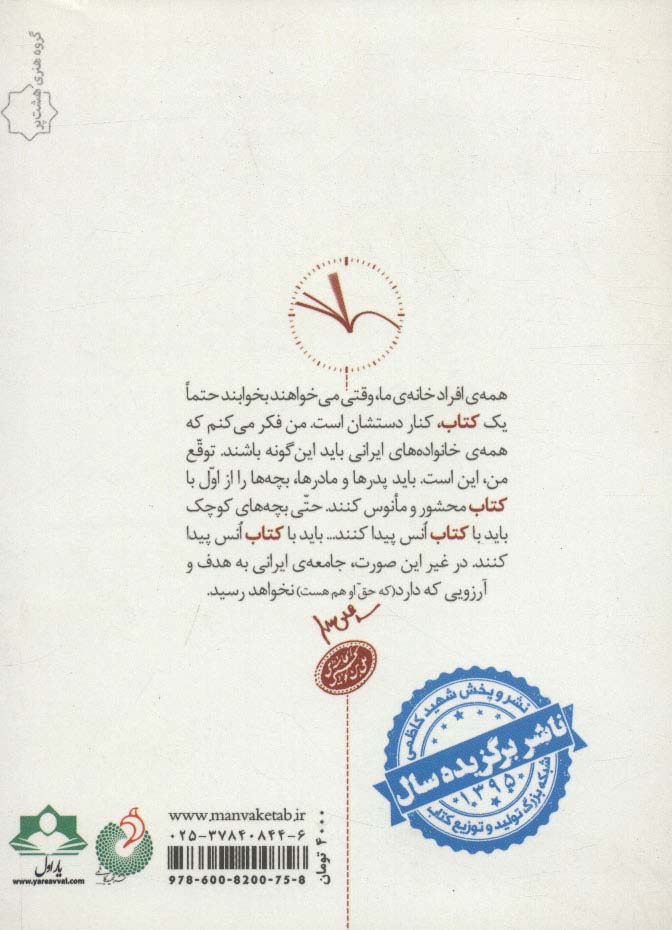 گروه هنری هشت‌پر
همه‌ی افراد خانه‌ی ما، وقتی می‌خواهند بخوابند حتماً
یک کتاب، کنار دستشان است. من فکر می‌کنم که
همه‌ی خانواده‌های ایرانی باید این‌گونه باشند. توقّع
من، این است. باید پدرها و مادرها، بچه‌ها را از اوّل با
کتاب محشور و مأنوس کنند. حتّی بچه‌های کوچک
باید با کتاب اُنس پیدا کنند... باید با کتاب اُنس پیدا
کنند. در غیر این صورت، جامعه‌ی ایرانی به هدف و
آرزویی که دارد(که حقّ او هم هست) نخواهد رسید.
نشر و پخش شهید کاظمی
ناشر برگزیده سال
۱۳۹۵
شبکه بزرگ تولید و توزیع کتاب
www.manvaketab.ir
۰۲۵-۳۷۸۴۰۸۴۴-۶
978-600-8200-75-8
۴۰۰۰ تومان
یار اول
www.yareavval.com